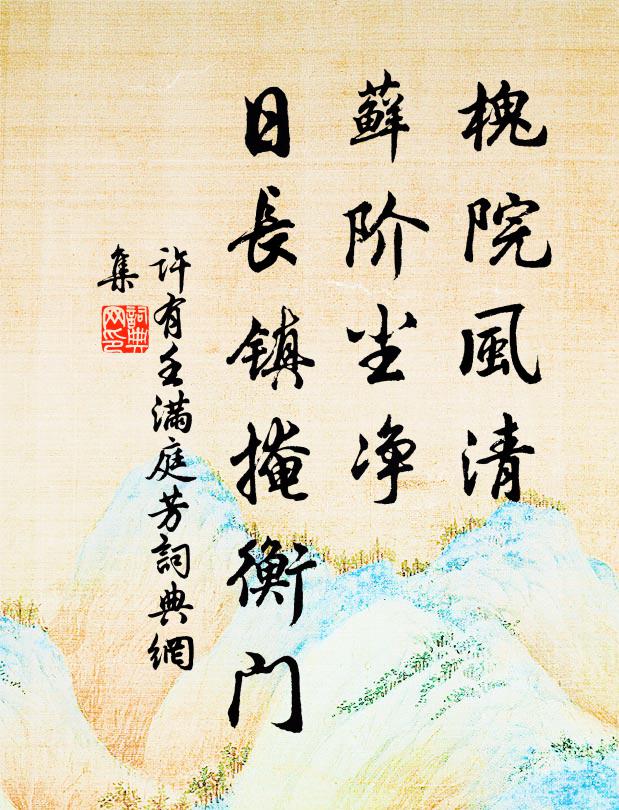 槐院風清
蘚阶尘净
日長镇掩衡门
许有壬满庭芳詞典網
集
詞典
网印